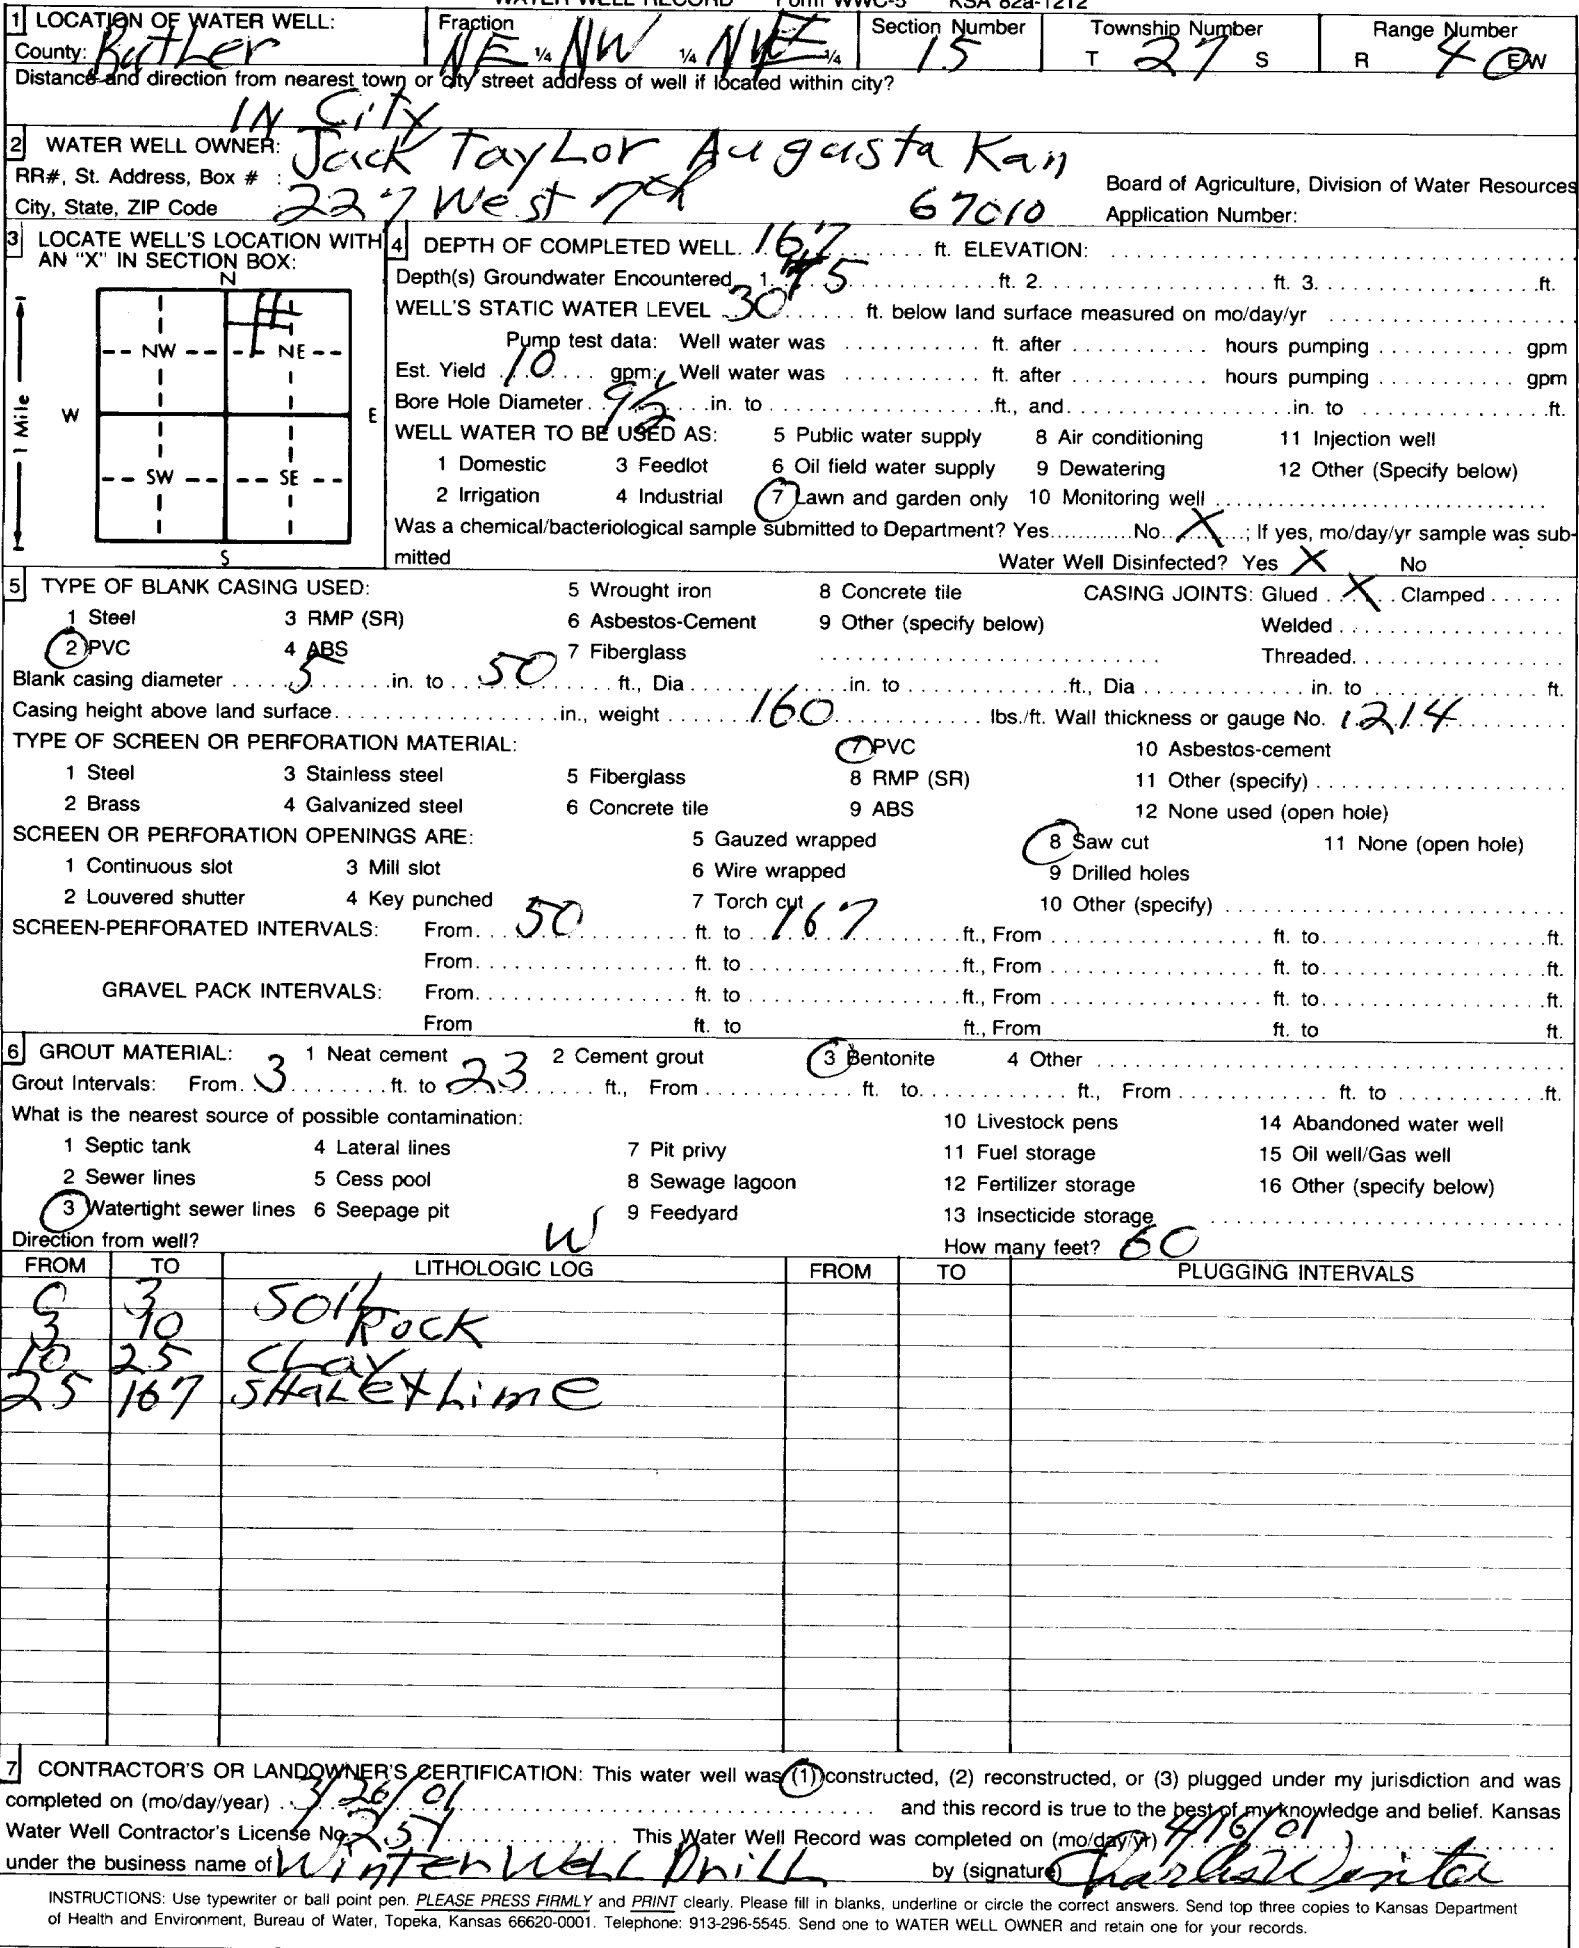 WATER WELL RECORD Form WWC-5 KSA 82a-1212
1 LOCATION OF WATER WELL: Fraction Section Number Township Number Range Number
County: Butler NE ¼ NW ¼ NE ¼ 15 T 27 S R 4 E/W
Distance and direction from nearest town or city street address of well if located within city?
IN City
2 WATER WELL OWNER: Jack Taylor Augusta Kan
RR#, St. Address, Box # : 227 West 7th 67010 Board of Agriculture, Division of Water Resources
City, State, ZIP Code : Application Number:
3 LOCATE WELL'S LOCATION WITH AN "X" IN SECTION BOX:
N
NW NE
W E
SW SE
S
1 Mile
4 DEPTH OF COMPLETED WELL. 167 ft. ELEVATION:
Depth(s) Groundwater Encountered 1. 75 ft. 2. ft. 3. ft.
WELL'S STATIC WATER LEVEL 30 ft. below land surface measured on mo/day/yr
Pump test data: Well water was ft. after hours pumping gpm
Est. Yield 10 gpm; Well water was ft. after hours pumping gpm
Bore Hole Diameter 9½ in. to ft., and in. to ft.
WELL WATER TO BE USED AS: 5 Public water supply 8 Air conditioning 11 Injection well
1 Domestic 3 Feedlot 6 Oil field water supply 9 Dewatering 12 Other (Specify below)
2 Irrigation 4 Industrial 7 Lawn and garden only 10 Monitoring well
Was a chemical/bacteriological sample submitted to Department? Yes No X ; If yes, mo/day/yr sample was sub-
mitted Water Well Disinfected? Yes X No
5 TYPE OF BLANK CASING USED: 5 Wrought iron 8 Concrete tile CASING JOINTS: Glued X Clamped
1 Steel 3 RMP (SR) 6 Asbestos-Cement 9 Other (specify below) Welded
2 PVC 4 ABS 7 Fiberglass Threaded
Blank casing diameter 5 in. to 50 ft., Dia in. to ft., Dia in. to ft.
Casing height above land surface in., weight 160 lbs./ft. Wall thickness or gauge No. 1214
TYPE OF SCREEN OR PERFORATION MATERIAL: 7 PVC 10 Asbestos-cement
1 Steel 3 Stainless steel 5 Fiberglass 8 RMP (SR) 11 Other (specify)
2 Brass 4 Galvanized steel 6 Concrete tile 9 ABS 12 None used (open hole)
SCREEN OR PERFORATION OPENINGS ARE: 5 Gauzed wrapped 8 Saw cut 11 None (open hole)
1 Continuous slot 3 Mill slot 6 Wire wrapped 9 Drilled holes
2 Louvered shutter 4 Key punched 7 Torch cut 10 Other (specify)
SCREEN-PERFORATED INTERVALS: From 50 ft. to 167 ft., From ft. to ft.
From ft. to ft., From ft. to ft.
GRAVEL PACK INTERVALS: From ft. to ft., From ft. to ft.
From ft. to ft., From ft. to ft.
6 GROUT MATERIAL: 1 Neat cement 2 Cement grout 3 Bentonite 4 Other
Grout Intervals: From 3 ft. to 23 ft., From ft. to ft., From ft. to ft.
What is the nearest source of possible contamination: 10 Livestock pens 14 Abandoned water well
1 Septic tank 4 Lateral lines 7 Pit privy 11 Fuel storage 15 Oil well/Gas well
2 Sewer lines 5 Cess pool 8 Sewage lagoon 12 Fertilizer storage 16 Other (specify below)
3 Watertight sewer lines 6 Seepage pit 9 Feedyard 13 Insecticide storage
Direction from well? W How many feet? 60
FROM TO LITHOLOGIC LOG FROM TO PLUGGING INTERVALS
0 3 Soil
3 10 Rock
10 25 Clay
25 167 Shale + Lime
7 CONTRACTOR'S OR LANDOWNER'S CERTIFICATION: This water well was (1) constructed, (2) reconstructed, or (3) plugged under my jurisdiction and was
completed on (mo/day/year) 3/26/01 and this record is true to the best of my knowledge and belief. Kansas
Water Well Contractor's License No. 257 This Water Well Record was completed on (mo/day/yr) 4/16/01
under the business name of Winter Well Drill by (signature) Charles Winter
INSTRUCTIONS: Use typewriter or ball point pen. PLEASE PRESS FIRMLY and PRINT clearly. Please fill in blanks, underline or circle the correct answers. Send top three copies to Kansas Department
of Health and Environment, Bureau of Water, Topeka, Kansas 66620-0001. Telephone: 913-296-5545. Send one to WATER WELL OWNER and retain one for your records.